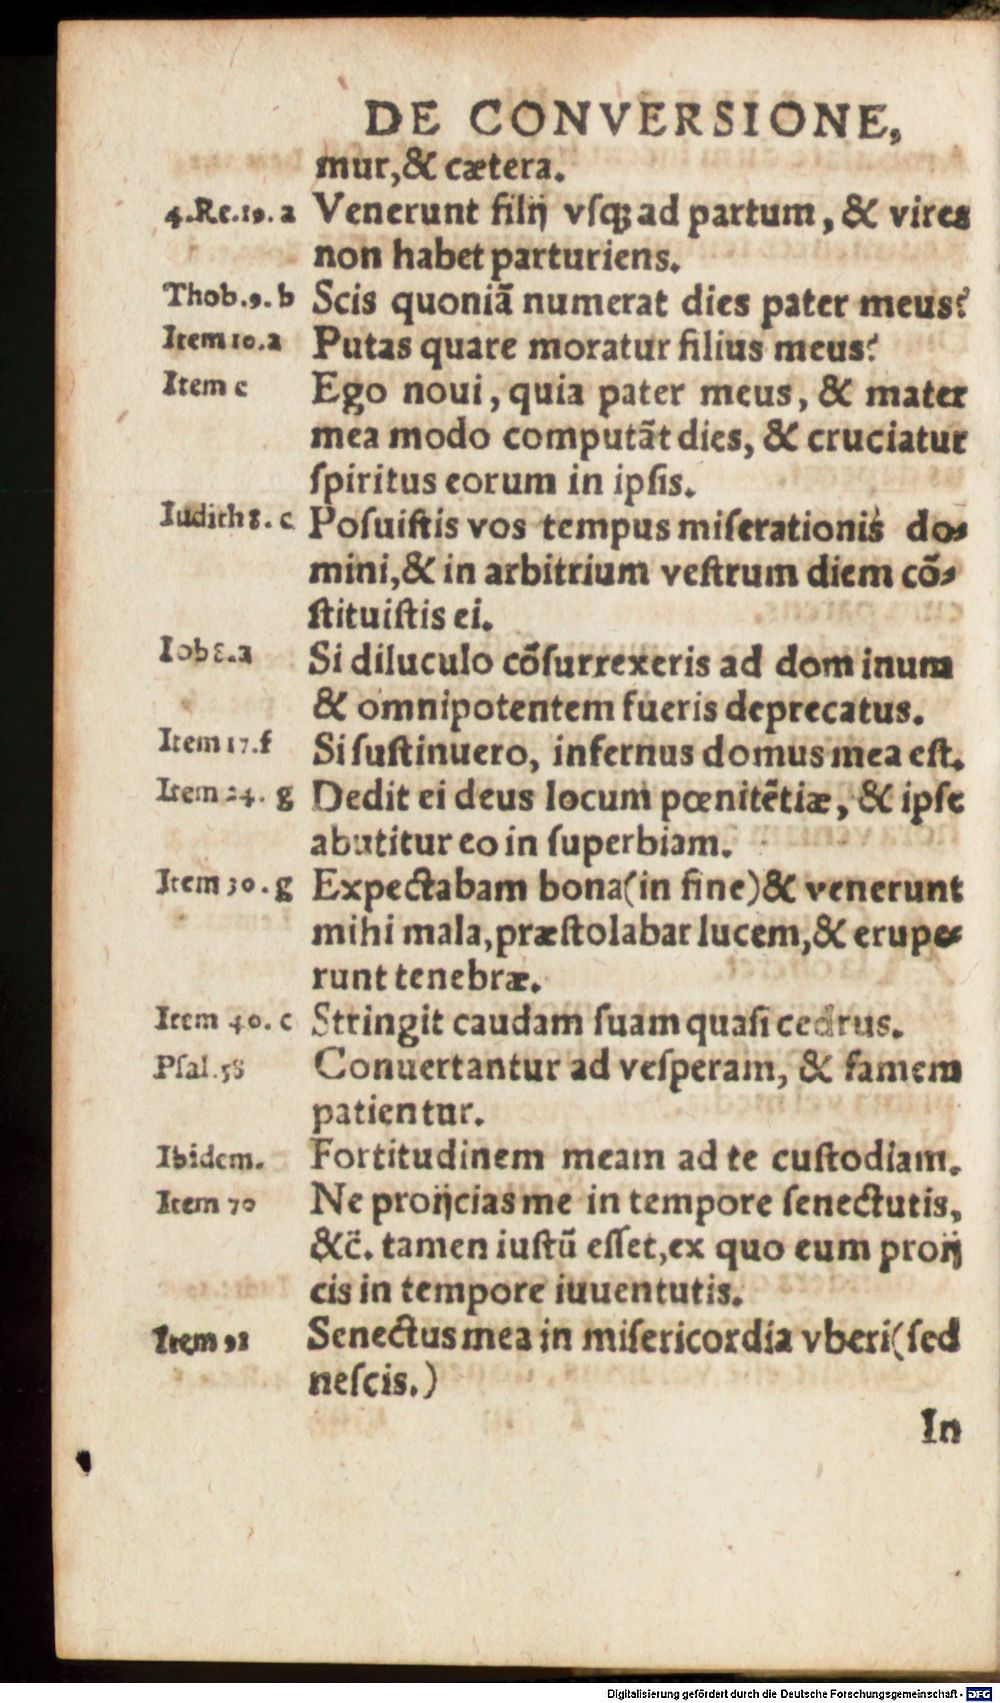 DE CONVERSIONE,
mur,& cætera.
4.Re.19. a Venerunt filij vsq; ad partum, & vires
non habet parturiens.
Thob.9. b Scis quoniã numerat dies pater meus?
Item 10.a Putas quare moratur filius meus?
Item c Ego noui, quia pater meus, & mater
mea modo computãt dies, & cruciatur
ſpiritus eorum in ipſis.
Iudith 8. c Poſuiſtis vos tempus miſerationis do⸗
mini,& in arbitrium veſtrum diem cõ⸗
ſtituiſtis ei.
Iob 8.a Si diluculo cõſurrexeris ad dom inum
& omnipotentem fueris deprecatus.
Item 17.f Si ſuſtinuero, infernus domus mea eſt.
Item 24. g Dedit ei deus locum pœnitẽtiæ, & ipſe
abutitur eo in ſuperbiam.
Item 30. g Expectabam bona(in fine)& venerunt
mihi mala,præſtolabar lucem,& erupe⸗
runt tenebræ.
Item 40. c Stringit caudam ſuam quaſi cedrus.
Pſal.58 Conuertantur ad veſperam, & famem
patientur.
Ibidem. Fortitudinem meam ad te cuſtodiam.
Item 70 Ne proijcias me in tempore ſenectutis,
&c̃. tamen iuſtũ eſſet,ex quo eum proij
cis in tempore iuuentutis.
Item 91 Senectus mea in miſericordia vberi(ſed
neſcis.)
In
Digitalisierung gefördert durch die Deutsche Forschungsgemeinschaft - DFG